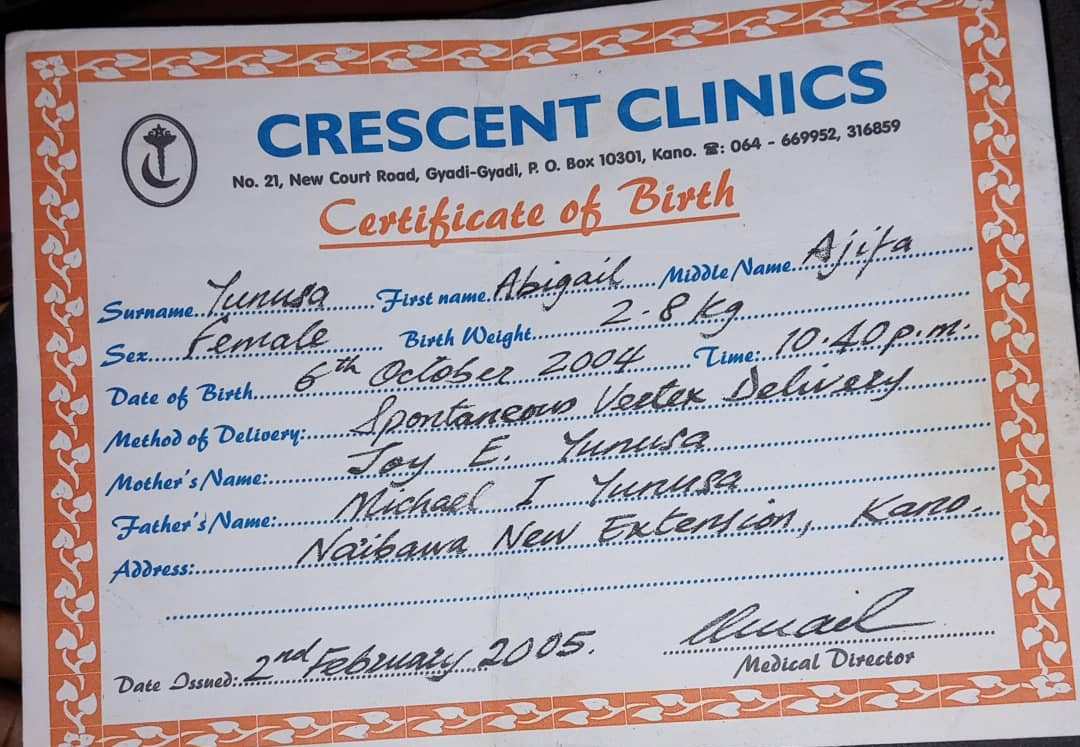 CRESCENT CLINICS
No. 21, New Court Road, Gyadi-Gyadi, P. O. Box 10301, Kano. ☎: 064 - 669952, 316859
Certificate of Birth
Surname Yunusa First name Abigail Middle Name Ajifa
Sex Female Birth Weight 2.8 Kg
Date of Birth 6th October 2004 Time: 10.40 p.m.
Method of Delivery: Spontaneous Vertex Delivery
Mother's Name: Joy E. Yunusa
Father's Name: Michael I Yunusa
Address: Na'ibawa New Extension, Kano.
Date Issued: 2nd February 2005.
Medical Director